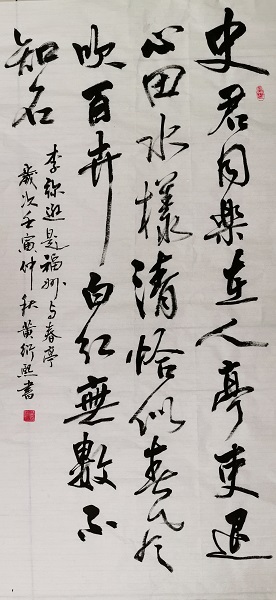 史君同樂在人亭吏退
心田水樣清恰似春風
吹百卉白紅無數不
知名
李弥逊題福州与春亭
歲次壬寅仲秋黄衍熙書